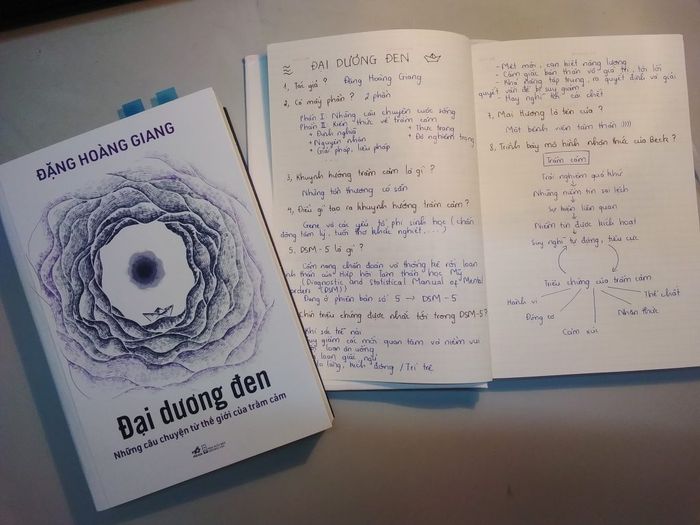 ĐẶNG HOÀNG GIANG
Đại dương đen
Những câu chuyện từ thế giới của trầm cảm
ĐẠI DƯƠNG ĐEN
1, Tác giả ? Đặng Hoàng Giang
2, Có mấy phần ? 2 phần
Phần I : Những câu chuyện cuộc sống
Phần II : Kiến thức về trầm cảm
+ Định nghĩa + Thực trạng
+ Nguyên nhân + Độ nghiêm trọng
+ Giải pháp, liệu pháp
3, Khuynh hướng trầm cảm là gì ?
Những tổn thương có sẵn
4, Điều gì tạo ra khuynh hướng trầm cảm ?
Gene và các yếu tố phi sinh học (chấn
động tâm lý, tuổi thơ khắc nghiệt,...)
5. DSM-5 là gì ?
Cẩm nang chẩn đoán và thống kê rối loạn
thần của Hiệp hội Tâm thần học Mỹ
(Diagnostic and Statistical Manual of Mental
orders (DSM))
Đang ở phiên bản số 5 → DSM-5
Chín triệu chứng được nhắc tới trong DSM-5?
Khí sắc trể nải
suy giảm các mối quan tâm và niềm vui
loạn ăn uống
loạn giấc ngủ
lo lắng, kích động / Trì trệ
- Mệt mỏi, cạn kiệt năng lượng
- Cảm giác bản thân vô giá trị, tội lỗi
- Khả năng tập trung, ra quyết định và giải
quyết vấn đề bị suy giảm
- Hay nghĩ tới cái chết
7. Mai Hương là tên của ?
Một bệnh viện tâm thần :))))
8. Trình bày mô hình nhận thức của Beck ?
Trầm cảm
Trải nghiệm quá khứ
Những niềm tin sai lệch
Sự kiện liên quan
Niềm tin được kích hoạt
Suy nghĩ tự động, tiêu cực
Triệu chứng của trầm cảm
Hành vi
Động cơ
Cảm xúc
Nhận thức
Thể chất